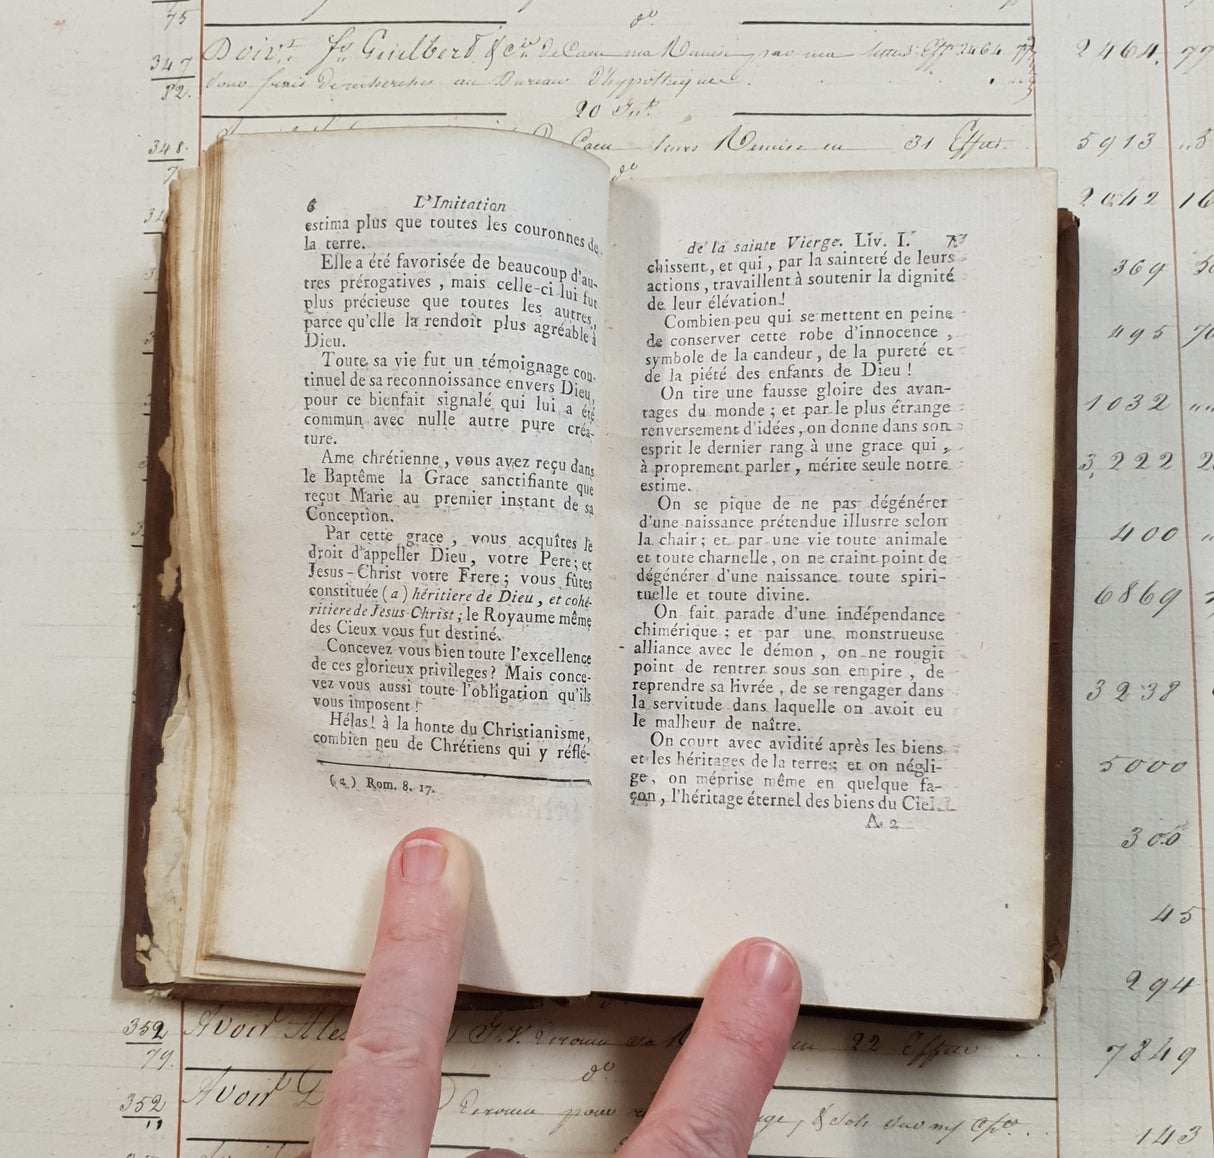 75
dº
347
82.
Doivt. fs. Guilbert & Cie. de Caen ma Remise par ma lettre Eff. 2464 77
pour frais de recherches au Bureau d'hypothèque
2464. 77
20 Jut.
348.
Caen leurs Remise en 31 Effets.
5913
dº
2042 16
369
495
1032 "
3,222
400
6869
3238
5000
300
45
294
7849
143
6 L'Imitation
estima plus que toutes les couronnes de
la terre.
Elle a été favorisée de beaucoup d'au-
tres prérogatives, mais celle-ci lui fut
plus précieuse que toutes les autres,
parce qu'elle la rendoit plus agréable à
Dieu.
Toute sa vie fut un témoignage con-
tinuel de sa reconnoissance envers Dieu,
pour ce bienfait signalé qui lui a été
commun avec nulle autre pure créa-
ture.
Ame chrétienne, vous avez reçu dans
le Baptême la Grace sanctifiante que
reçut Marie au premier instant de sa
Conception.
Par cette grace, vous acquîtes le
droit d'appeller Dieu, votre Pere; et
Jesus-Christ votre Frere; vous fûtes
constituée (a) héritiere de Dieu, et cohé-
ritiere de Jesus-Christ; le Royaume même
des Cieux vous fut destiné.
Concevez vous bien toute l'excellence
de ces glorieux privileges? Mais conce-
vez vous aussi toute l'obligation qu'ils
vous imposent!
Hélas! à la honte du Christianisme,
combien peu de Chrétiens qui y réflé-
(a) Rom. 8. 17.
de la sainte Vierge. Liv. I. 7
chissent, et qui, par la sainteté de leurs
actions, travaillent à soutenir la dignité
de leur élévation!
Combien peu qui se mettent en peine
de conserver cette robe d'innocence,
symbole de la candeur, de la pureté et
de la piété des enfants de Dieu!
On tire une fausse gloire des avan-
tages du monde; et par le plus étrange
renversement d'idées, on donne dans son
esprit le dernier rang à une grace qui,
à proprement parler, mérite seule notre
estime.
On se pique de ne pas dégénérer
d'une naissance prétendue illustre selon
la chair; et par une vie toute animale
et toute charnelle, on ne craint point de
dégénérer d'une naissance toute spiri-
tuelle et toute divine.
On fait parade d'une indépendance
chimérique; et par une monstrueuse
alliance avec le démon, on ne rougit
point de rentrer sous son empire, de
reprendre sa livrée, de se rengager dans
la servitude dans laquelle on avoit eu
le malheur de naître.
On court avec avidité après les biens
et les héritages de la terre; et on négli-
ge, on méprise même en quelque fa-
çon, l'héritage éternel des biens du Ciel.
A 2
352
79.
Avoir
22 Effets
dº
352
"
Avoir
pour